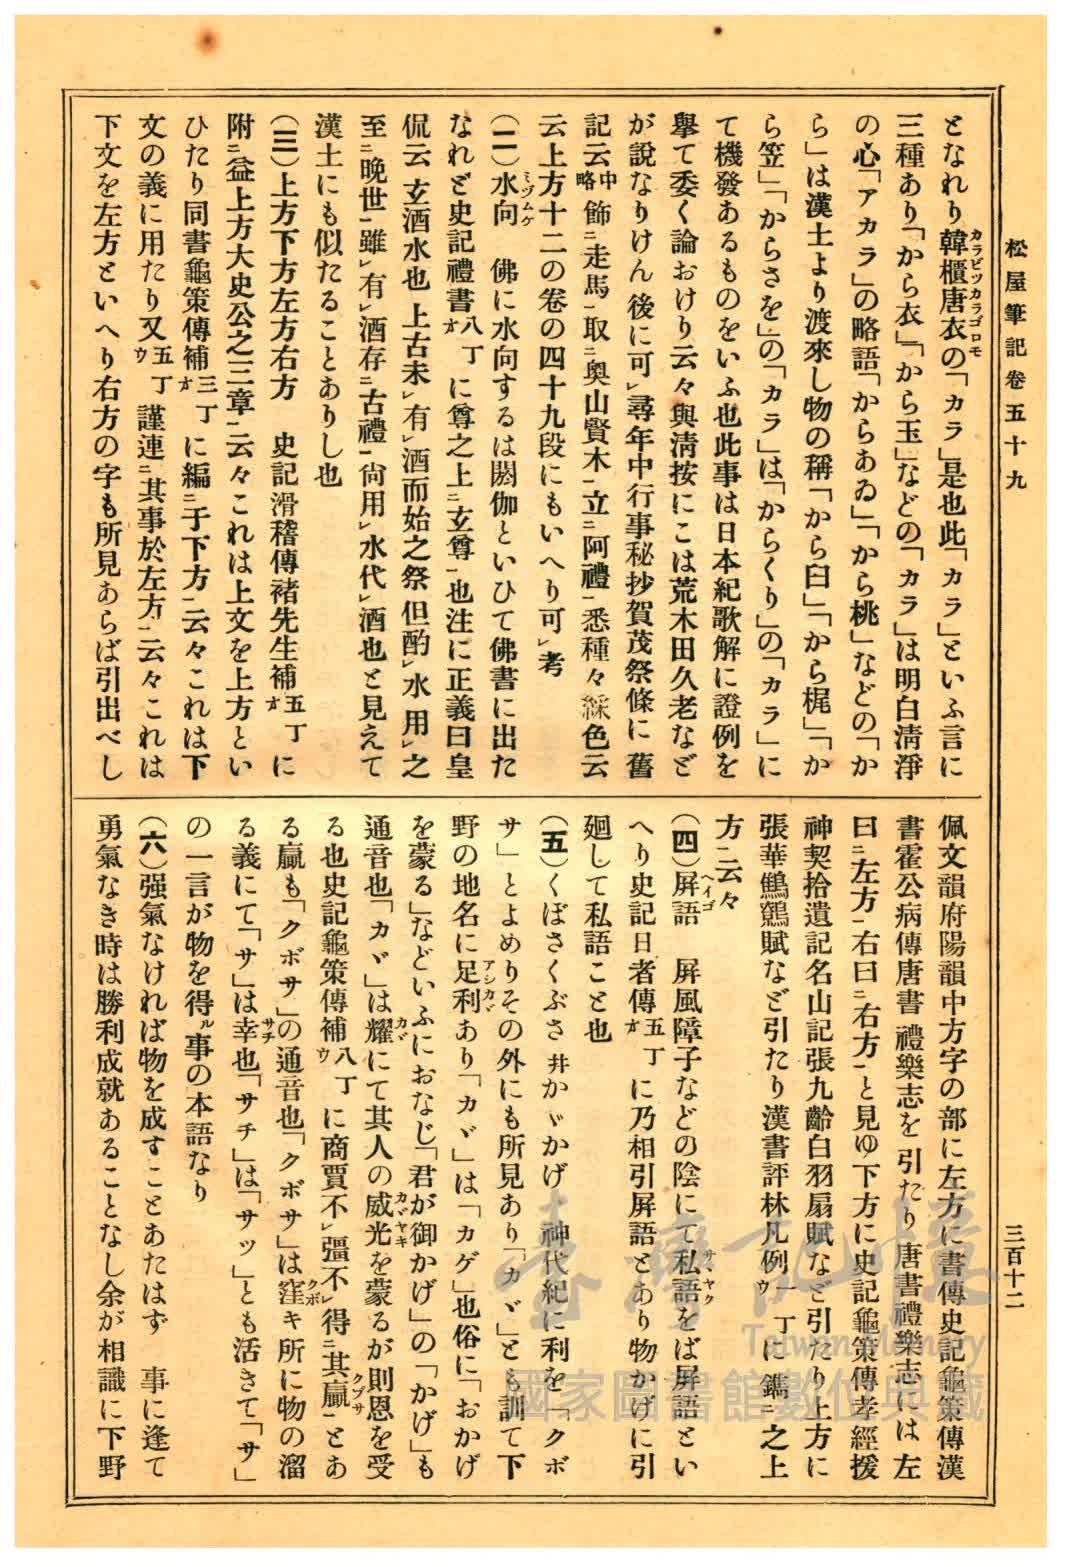 松屋筆記卷五十九
三百十二
となれり韓櫃唐衣の「カラ」是也此「カラ」といふ言に
三種あり「から衣」「から玉」などの「カラ」は明白清淨
の心「アカラ」の略語「からあゐ」「から桃」などの「か
ら」は漢土より渡來し物の稱「から臼」「から梶」「か
ら笠」「からさを」の「カラ」は「からくり」の「カラ」に
て機發あるものをいふ也此事は日本紀歌解に證例を
擧て委く論おけり云々與淸按にこは荒木田久老など
が説なりけん後に可レ尋年中行事秘抄賀茂祭條に舊
記云中略飾ニ走馬一取ニ奧山賢木一立ニ阿禮一悉種々綵色云
云上方十二の卷の四十九段にもいへり可レ考
(二)水向　佛に水向するは閼伽といひて佛書に出た
なれど史記禮書八丁オに尊之上ニ玄尊一也注に正義曰皇
侃云玄酒水也上古未レ有レ酒而始之祭但酌レ水用レ之
至ニ晩世一雖レ有レ酒存ニ古禮一尙用レ水代レ酒也と見えて
漢土にも似たることありし也
(三)上方下方左方右方　史記滑稽傳褚先生補五丁オに
附ニ益上方大史公之三章一云々これは上文を上方とい
ひたり同書龜策傳補三丁オに編ニ于下方一云々これは下
文の義に用たり又五丁ウ謹連ニ其事於左方一云々これは
下文を左方といへり右方の字も所見あらば引出べし
佩文韻府陽韻中方字の部に左方に書傳史記龜策傳漢
書霍公病傳唐書禮樂志を引たり唐書禮樂志には左
曰ニ左方一右曰ニ右方一と見ゆ下方に史記龜策傳孝經援
神契拾遺記名山記張九齡白羽扇賦など引たり上方に
張華鷦鷯賦など引たり漢書評林凡例一丁ウに鐫ニ之上
方一云々
(四)屛語　屛風障子などの陰にて私語をば屛語とい
へり史記日者傳五丁オに乃相引屛語とあり物かげに引
廻して私語こと也
(五)くぼさくぶさ井かゞかげ　神代紀に利を「クボ
サ」とよめりその外にも所見あり「カゞ」とも訓て下
野の地名に足利あり「カゞ」は「カゲ」也俗に「おかげ
を蒙る」などいふにおなじ「君が御かげ」の「かげ」も
通音也「カゞ」は耀にて其人の威光を蒙るが則恩を受
る也史記龜策傳補八丁ウに商賈不レ彊不レ得ニ其贏一とあ
る贏も「クボサ」の通音也「クボサ」は窪キ所に物の溜
る義にて「サ」は幸也「サチ」は「サツ」とも活きて「サ」
の一言が物を得ル事の本語なり
(六)强氣なければ物を成すことあたはず　事に逢て
勇氣なき時は勝利成就あることなし余が相識に下野
臺灣記憶
Taiwan Memory
國家圖書館數位典藏